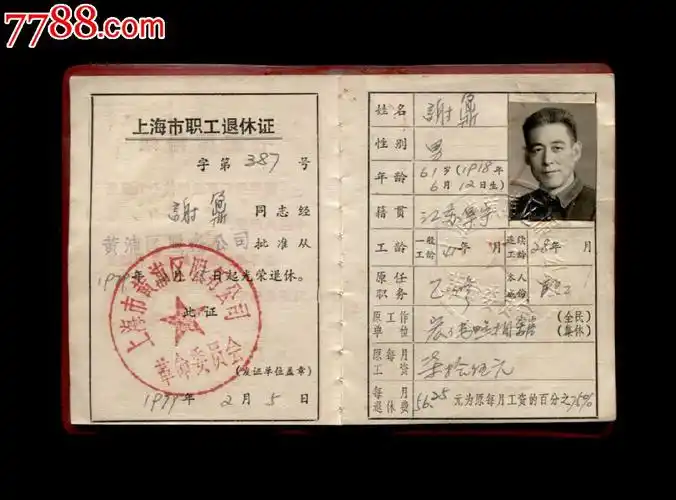 7788.com
上海市职工退休证
字第 387 号
謝鼎 同志经
黄浦区服务公司 批准从
1979年 月 日起光荣退休。
此证
上海市黄浦区服务公司
革命委员会
(发证单位盖章)
1979年 2月 5日
姓名 謝鼎
性别 男
年龄 61岁(1918年
6月12日生)
籍贯 江苏
工龄 一般工龄 年 月 连续工龄 28年 月
原任职务 本人成份
原工作单位 (全民)
(集体)
原每月工资 柒拾伍元
每月退休费 56.25 元为原每月工资的百分之75%